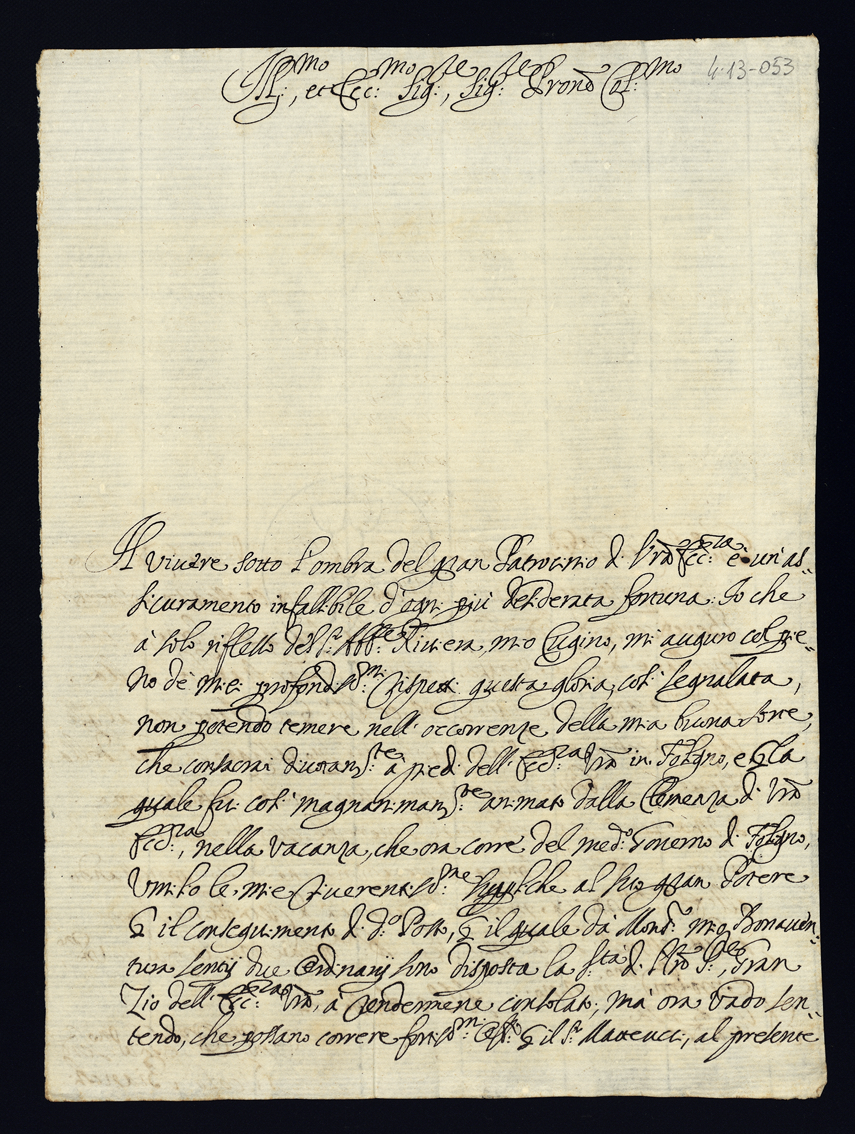 Ill:mo, et Ecc:mo Sig:re, Sig:re Prone Col:mo
4-13-053
Il vivere sotto l'ombra del gran Patrocinio di Vra Ecc:za è un'as-
sicuramento infallibile d'ogni più desiderata fortuna. Io che
à solo riflesso del S.r Riviera mio Cugino, mi auguro col pie-
no de miei profondiss:mi rispetti questa gloria così segnalata,
non potendo temere nell'occorrenze della mia buona sorte,
che consacrai divotam:te à piedi dell'Ecc:za Vra in Foligno, e p la
quale fu così magnanimam:te animato dalla Clemenza di Vra
Ecc:za, nella vacanza, che ora corre del med:o Governo di Foligno,
Umilio le mie riverentiss:me Suppliche al suo gran Potere
p il conseguimento di d:o Posto, p il quale da Mons:r mio Bonaven-
tura sentij due Ordinarij sono disposta la S:tà di Nro S:re, Gran
Zio dell'Ecc:za Vra, à rendermene consolato; mà ora vado sen-
tendo, che possano correre fortiss:mi p il S:r Matteucci, al presente